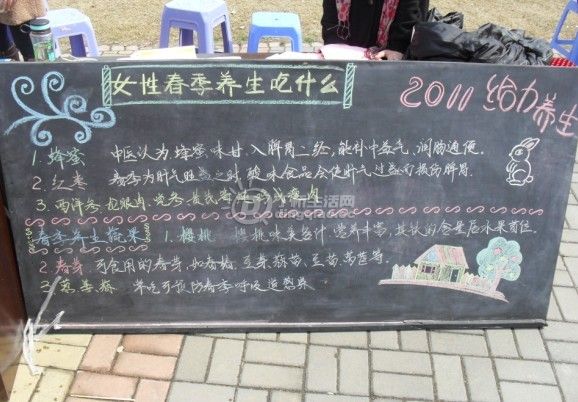 女性春季养生吃什么
2011 给力养生
1. 蜂蜜 中医认为,蜂蜜味甘、入脾胃二经,能补中益气、润肠通便。
2. 红枣 春季为肝气旺盛之时,酸味食品会使肝气过盛而损伤脾胃.
3. 西洋参
春季养生蔬果 1. 樱桃 樱桃味美多汁 营养丰富,其铁的含量居水果首位。
2. 春芽 可食用的春芽,如香椿、豆芽、蒜苗、豆苗、莴苣等.
3. 葱姜蒜 常吃可预防春季呼吸道感染